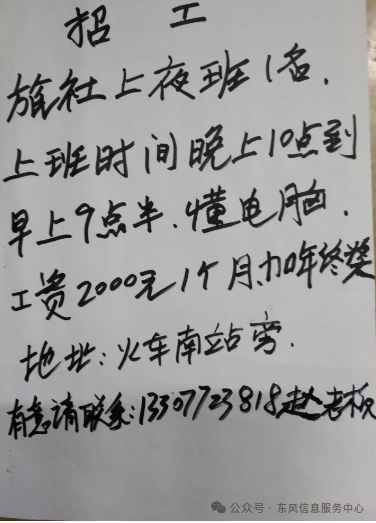 招 工
旅社上夜班1名.
上班时间晚上10点到
早上9点半.懂电脑.
工资2000元1个月.加年终奖
地址:火车南站旁.
有意请联系:13307723818赵老板
公众号·东风信息服务中心